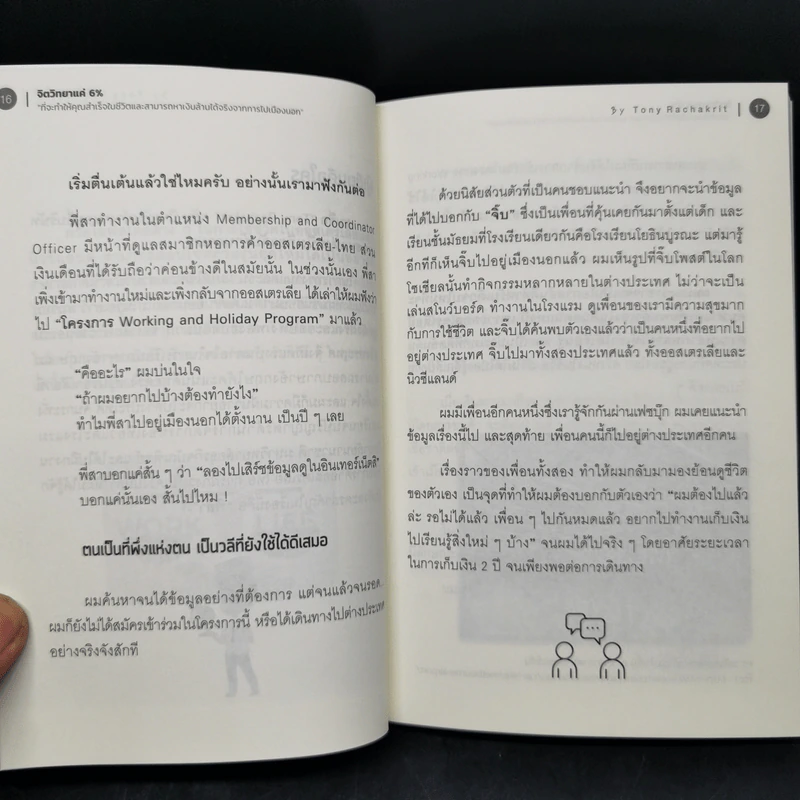 16
จิตวิทยาแค่ 6%
"ที่จะทำให้คุณสำเร็จในชีวิตและสามารถหาเงินล้านได้จริงจากการไปเมืองนอก"
เริ่มตื่นเต้นแล้วใช่ไหมครับ อย่างนั้นเรามาฟังกันต่อ
พี่สาทำงานในตำแหน่ง Membership and Coordinator
Officer มีหน้าที่ดูแลสมาชิกหอการค้าออสเตรเลีย-ไทย ส่วน
เงินเดือนที่ได้รับถือว่าค่อนข้างดีในสมัยนั้น ในช่วงนั้นเอง พี่สา
เพิ่งเข้ามาทำงานใหม่และเพิ่งกลับจากออสเตรเลีย ได้เล่าให้ผมฟังว่า
ไป "โครงการ Working and Holiday Program" มาแล้ว
"คืออะไร" ผมบ่นในใจ
"ถ้าผมอยากไปบ้างต้องทำยังไง"
ทำไมพี่สาไปอยู่เมืองนอกได้ตั้งนาน เป็นปี ๆ เลย
พี่สาบอกแค่สั้น ๆ ว่า "ลองไปเสิร์ชข้อมูลดูในอินเทอร์เน็ตสิ"
บอกแค่นั้นเอง สั้นไปไหม !
ตนเป็นที่พึ่งแห่งตน เป็นวลีที่ยังใช้ได้ดีเสมอ
ผมค้นหาจนได้ข้อมูลอย่างที่ต้องการ แต่จนแล้วจนรอด
ผมก็ยังไม่ได้สมัครเข้าร่วมในโครงการนี้ หรือได้เดินทางไปต่างประเทศ
อย่างจริงจังสักที
By Tony Rachakrit
17
ด้วยนิสัยส่วนตัวที่เป็นคนชอบแนะนำ จึงอยากจะนำข้อมูล
ที่ได้ไปบอกกับ "จิ๊บ" ซึ่งเป็นเพื่อนที่คุ้นเคยกันมาตั้งแต่เด็ก และ
เรียนชั้นมัธยมที่โรงเรียนเดียวกันคือโรงเรียนโยธินบูรณะ แต่มารู้
อีกทีก็เห็นจิ๊บไปอยู่เมืองนอกแล้ว ผมเห็นรูปที่จิ๊บโพสต์ในโลก
โซเชียลนั้นทำกิจกรรมหลากหลายในต่างประเทศ ไม่ว่าจะเป็น
เล่นสโนว์บอร์ด ทำงานในโรงแรม ดูเพื่อนของเรามีความสุขมาก
กับการใช้ชีวิต และจิ๊บได้ค้นพบตัวเองแล้วว่าเป็นคนหนึ่งที่อยากไป
อยู่ต่างประเทศ จิ๊บไปมาทั้งสองประเทศแล้ว ทั้งออสเตรเลียและ
นิวซีแลนด์
ผมมีเพื่อนอีกคนหนึ่งซึ่งเรารู้จักกันผ่านเฟซบุ๊ก ผมเคยแนะนำ
ข้อมูลเรื่องนี้ไป และสุดท้าย เพื่อนคนนี้ก็ไปอยู่ต่างประเทศอีกคน
เรื่องราวของเพื่อนทั้งสอง ทำให้ผมกลับมามองย้อนดูชีวิต
ของตัวเอง เป็นจุดที่ทำให้ผมต้องบอกกับตัวเองว่า "ผมต้องไปแล้ว
ล่ะ รอไม่ได้แล้ว เพื่อน ๆ ไปกันหมดแล้ว อยากไปทำงานเก็บเงิน
ไปเรียนรู้สิ่งใหม่ ๆ บ้าง" จนผมได้ไปจริง ๆ โดยอาศัยระยะเวลา
ในการเก็บเงิน 2 ปี จนเพียงพอต่อการเดินทาง